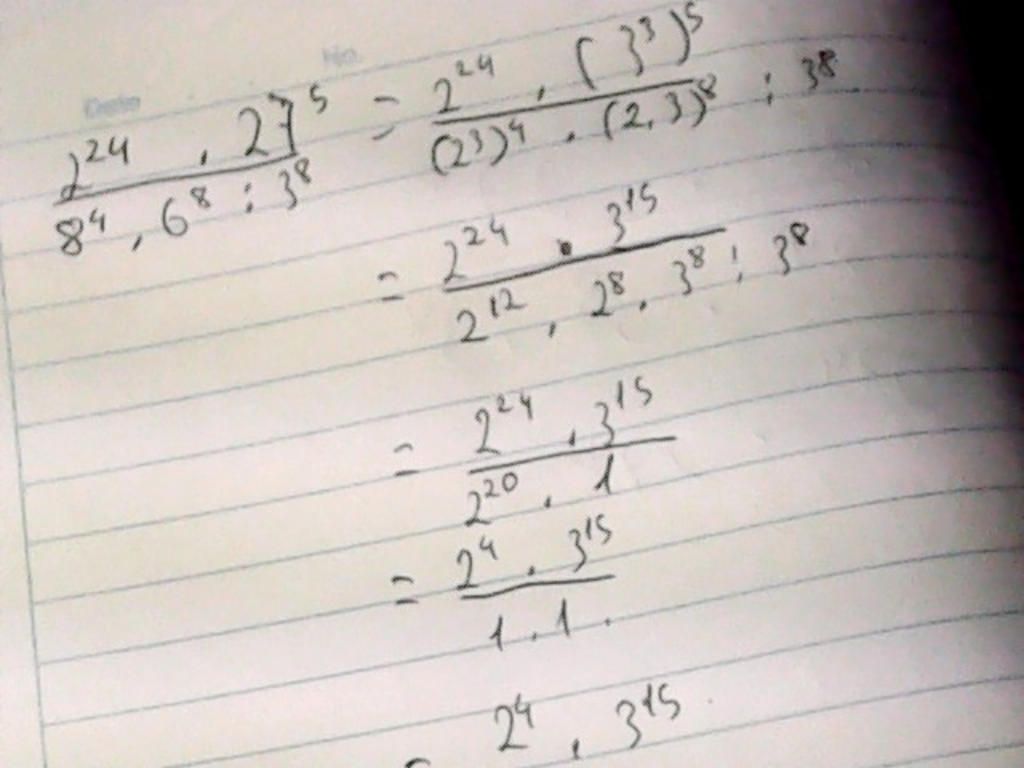 Date No.
2²⁴ . 27⁵ / 8⁴ , 6⁸ : 3⁸ = 2²⁴ . (3³)⁵ / (2³)⁴ . (2.3)⁸ : 3⁸
= 2²⁴ . 3¹⁵ / 2¹² , 2⁸ . 3⁸ : 3⁸
= 2²⁴ . 3¹⁵ / 2²⁰ . 1
= 2⁴ . 3¹⁵ / 1 . 1 .
= 2⁴ . 3¹⁵